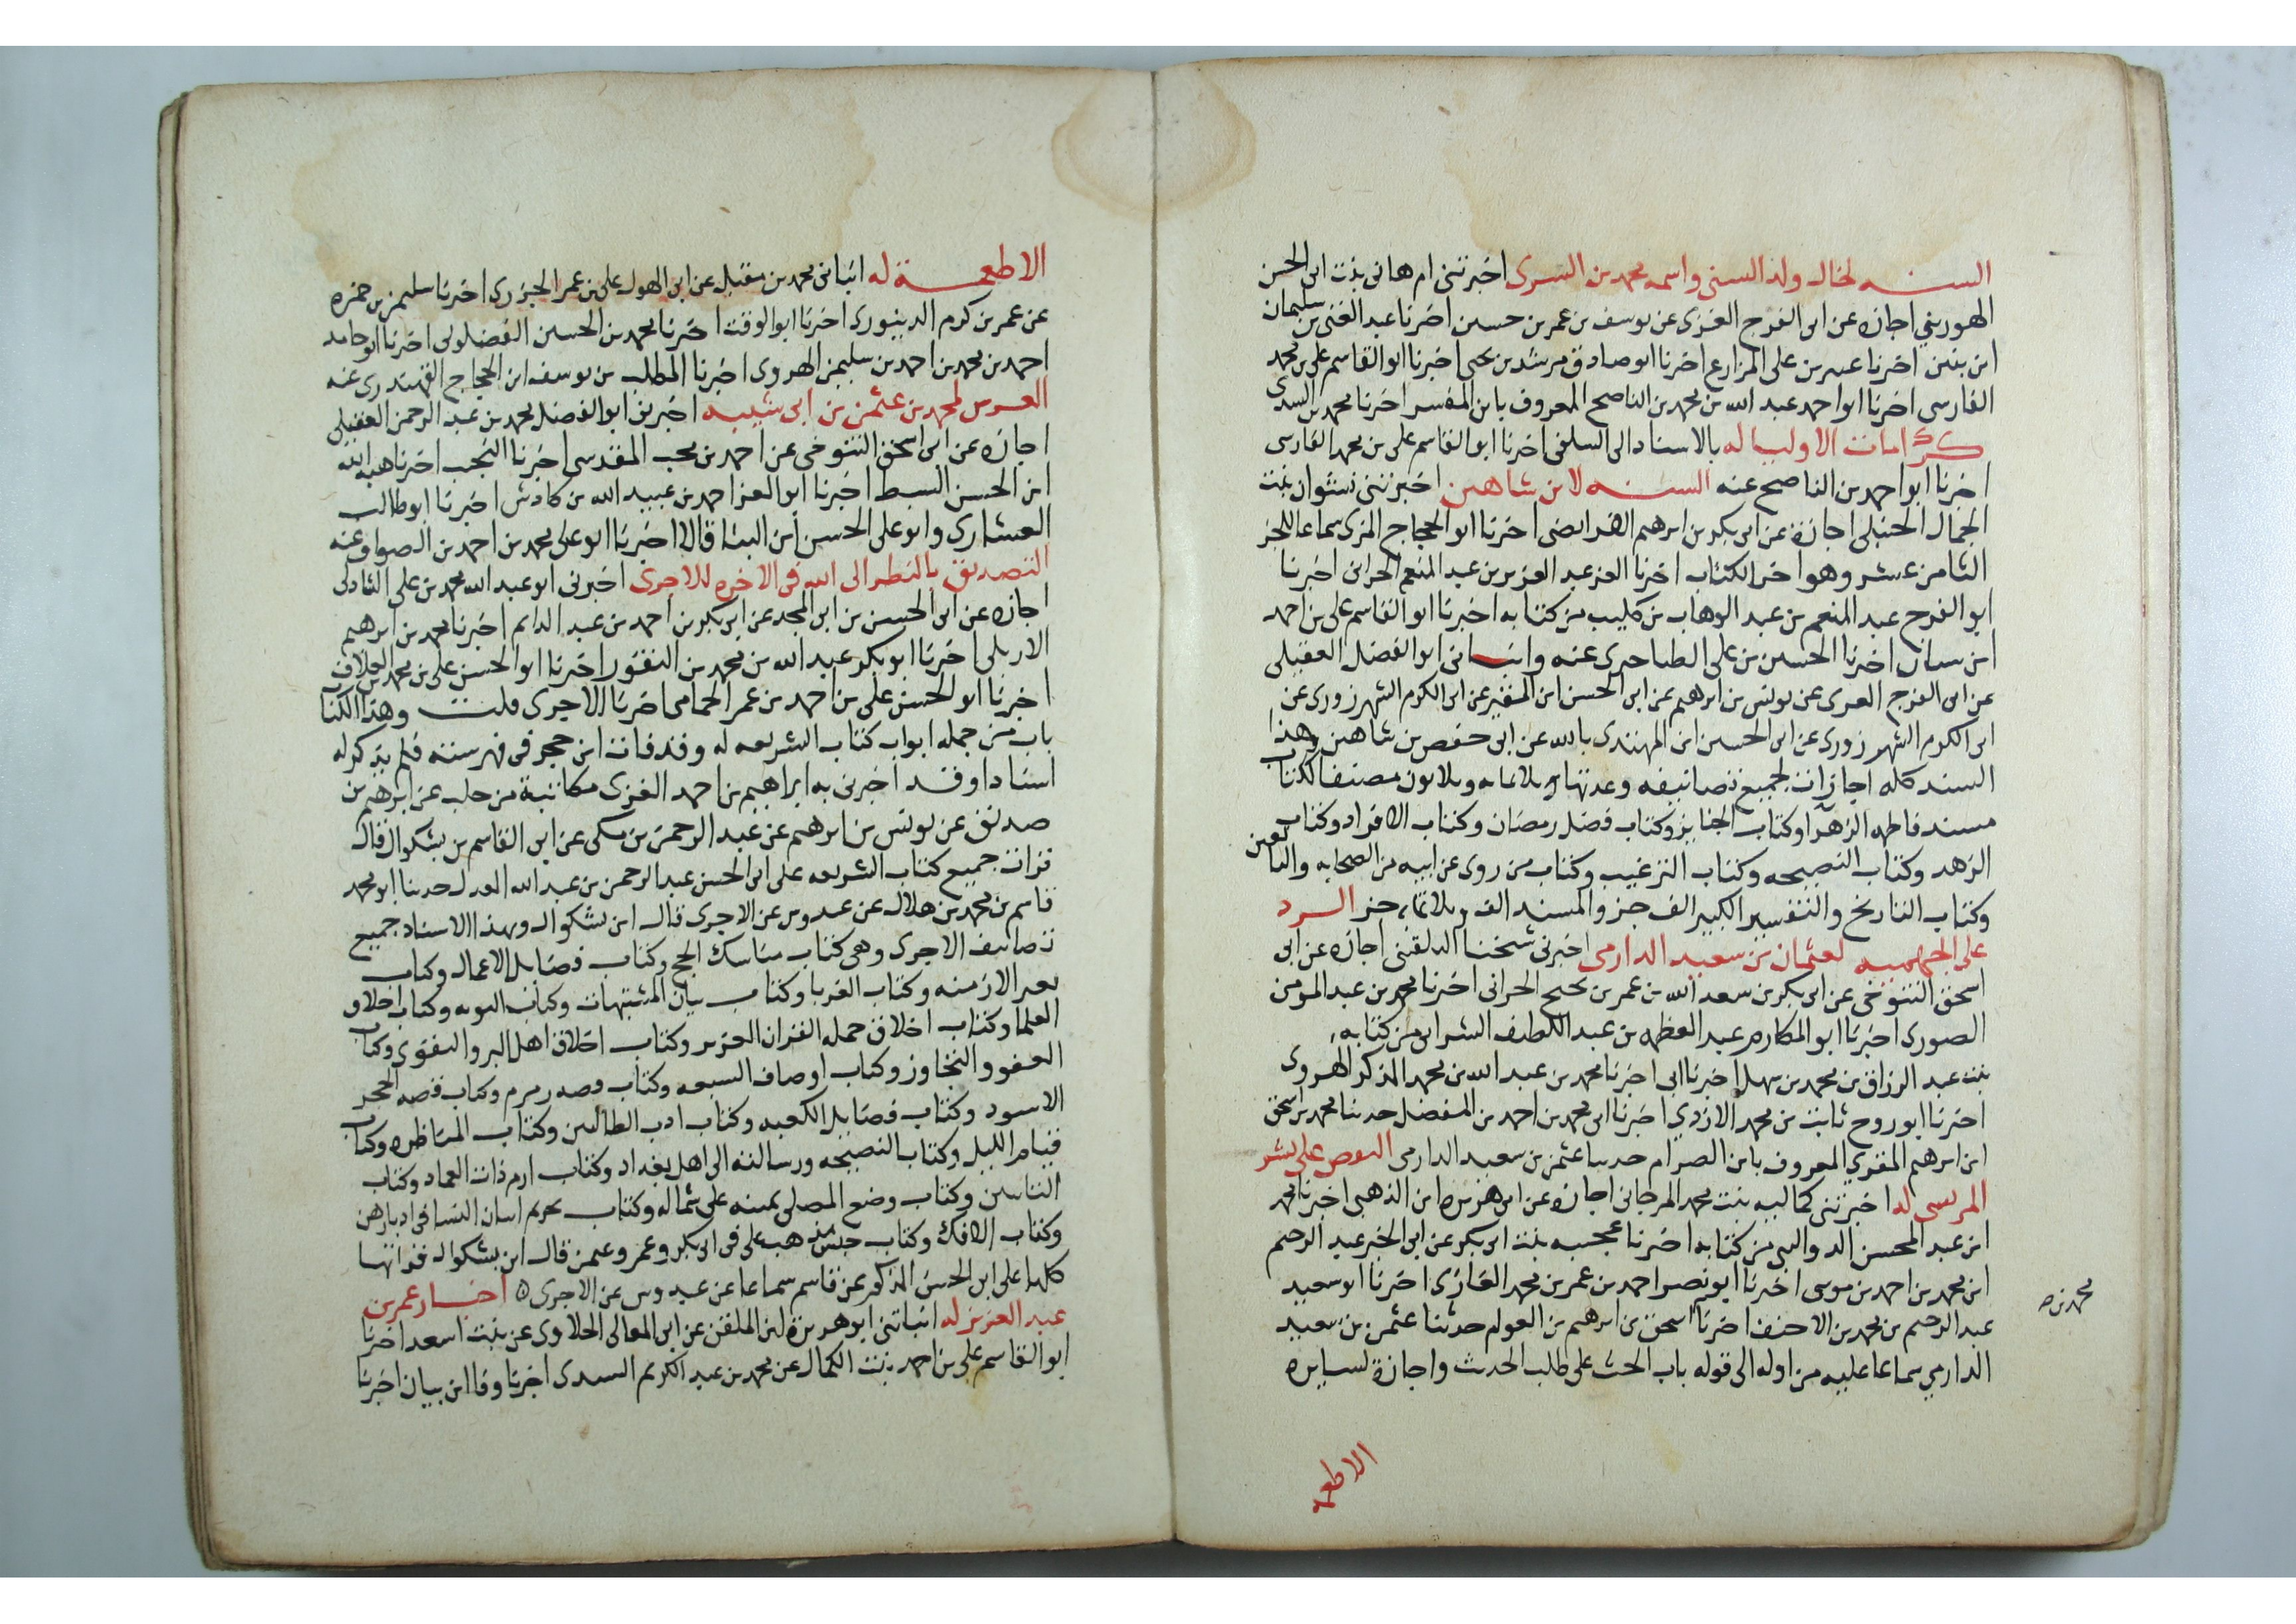 السنه لخال ولد السني واسمه محمد بن السرى اخبرتنى ام هانى بنت ابى الحسن
الهورينى اجازه عن ابى الفرج الغزى عن يوسف بن عمر بن حسين اخبرنا عبد الغنى بن سليمان
ابن بنين اخبرنا عمر بن على المزارع اخبرنا ابو صادق مرشد بن يحيى اخبرنا ابو القاسم على بن محمد
الفارسى اخبرنا ابو احمد عبد الله بن محمد بن الناصح المعروف بابن المفسر اخبرنا محمد بن السدى
كرامات الاوليا له بالاسناد الى السلفى اخبرنا ابو القاسم على بن محمد الفارسى
اخرنا ابو احمد بن الناصح عنه السنه لابن شاهين اخبرتنى نشوان بنت
الجمال الحنبلى اجازة عن ابى بكر بن ابرهيم الفرايضى اخبرنا ابو الحجاج المزى سماعا للجز
الثامن عشر وهو اخر الكتاب اخبرنا العز عبد العزيز بن عبد المنعم الحرانى اخبرنا
ابو الفرج عبد المنعم بن عبد الوهاب بن كليب من كتابه اخبرنا ابو القاسم على بن احمد
ابن بيان اخبرنا الحسين بن على الطناجيرى عنه وانبانى ابو الفضل العقيلى
عن ابى الفرج الغزى عن يونس بن ابرهيم عن ابى الحسن ابن المقير عن ابى الكرم الشهرزورى عن
ابى الكرم الشهرزورى عن ابى الحسين ابن المهتدى بالله عن ابى حفص بن شاهين وهذا
السند كله اجازات لجميع تصانيفه وعدتها ثلاثمايه وثلاثون مصنفا ككتاب
مسند فاطمه الزهرا وكتاب الجنايز وكتاب فضل رمضان وكتاب الافراد وكتاب
الزهد وكتاب النصيحه وكتاب الترغيب وكتاب من روى عن ابيه من الصحابه والتابعين
وكتاب التاريخ والتفسير الكبير الف جز والمسند الف وثلاثمايه جز الرد
على الجهميه لعثمان بن سعيد الدارمى اخبرنى شيخنا البلقينى اجازه عن ابى
اسحق التنوخى عن ابى بكر بن سعد الله بن عمر بن نجيح الحرانى اخبرنا محمد بن عبد المومن
الصورى اخبرنا ابو المكارم عبد العظيم بن عبد اللطيف الشرابى من كتابه
بنت عبد الرزاق بن محمد بن سهل اخبرنا ابى اخبرنا محمد بن عبد الله بن محمد المذكر الهروى
اخبرنا ابو روح ثابت بن محمد الازدى اخبرنا ابى محمد بن احمد بن المفضل حدثنا محمد بن اسحق
ابن ابرهيم المقرى المعروف بابن الصرام حدثنا عثمن بن سعيد الدارمى النقض على بشر
المريسى له اخبرتنى كماليه بنت محمد المرجانى اجازه عن ابى هريره ابن الذهبى اخبرنا محمد
ابن عبد المحسن الدواليبى من كتابه اخبرنا عجيبه بنت ابى بكر عن ابى الخير عبد الرحيم
ابن محمد بن احمد بن موسى اخبرنا ابو نصر احمد بن عمر بن محمد الغازى اخبرنا ابو سعيد
محمد بن صح
عبد الرحيم بن محمد بن الاحنف اخبرنا اسحق بن ابرهيم بن العوام حدثنا عثمن بن سعيد
الدارمي سماعا عليه من اوله الى قوله باب الحث على طلب الحديث واجازة لسايره
الاطعمه
الاطعمة له انبانى محمد بن مقبل عن ابى الهول على بن عمر الجزرى اخبرنا سليمن بن حمزه
عن عمر بن كرم الدينورى اخبرنا ابو الوقت اخبرنا محمد بن الحسين الفضلولى اخبرنا ابو حامد
احمد بن محمد بن احمد بن سليمن الهروى اخبرنا المطلب بن يوسف ابن الحجاج القهندزى عنه
العرش لمحمد بن عثمن بن ابى شيبه اخبرنى ابو الفضل محمد بن عبد الرحمن العقيلى
اجازه عن ابى اسحق التنوخى عن احمد بن محب المقدسى اخبرنا النجيب اخبرنا هبة الله
ابن الحسن السبط اخبرنا ابو العز احمد بن عبيد الله بن كادش اخبرنا ابو طالب
العشارى وابو على الحسين ابن البنا قالا اخبرنا ابو على محمد بن احمد بن الصواف عنه
التصديق بالنظر الى الله فى الاخره للاجرى اخبرنى ابو عبد الله محمد بن على الشاذلى
اجازه عن ابى الحسن بن ابى المجد عن ابى بكر بن احمد بن عبد الدايم اخبرنا محمد بن ابرهيم
الاربلى اخبرنا ابو بكر عبد الله بن محمد بن النقور اخبرنا ابو الحسن على بن محمد بن العلاف
اخبرنا ابو الحسن على بن احمد بن عمر الحمامى اخبرنا الاجرى قلت وهذا الكتاب
باب من جمله ابواب كتاب الشريعه له وقد فات ابن حجر فى فهرسته فلم يذكر له
اسنادا وقد اخبرنى به ابراهيم بن احمد الغزى مكاتبة من حلب عن ابرهيم بن
صديق عن يونس بن ابرهيم عن عبد الرحمن بن مكى عن ابى القاسم بن بشكوال قال
قرات جميع كتاب الشريعه على ابى الحسن عبد الرحمن بن عبد الله العدل حدثنا ابو محمد
قاسم بن محمد بن هلال عن عبدوس عن الاجرى قال ابن بشكوال وبهذا الاسناد جميع
تصانيف الاجرى وهى كتاب مناسك الحج وكتاب فضايل الاعمال وكتاب
تغير الازمنه وكتاب الغربا وكتاب بيان المشتبهات وكتاب التوبه وكتاب اخلاق
العلما وكتاب اخلاق حمله القران العزيز وكتاب اخلاق اهل البر والتقوى وكتاب
العفو والتجاوز وكتاب اوصاف السبعه وكتاب قصه زمزم وكتاب قصه الحجر
الاسود وكتاب فضايل الكعبه وكتاب ادب الطالبين وكتاب المناظره وكتاب
قيام الليل وكتاب النصيحه ورسالته الى اهل بغداد وكتاب ارم ذات العماد وكتاب
التاسين وكتاب وضع المصلى يمينه على شماله وكتاب تحريم اتيان النسا فى ادبارهن
وكتاب الافك وكتاب حسن مذهب على فى ابى بكر وعمر وعثمن قال ابن بشكوال قراتها
كلها على ابى الحسن المذكور عن قاسم سماعا عن عبدوس عن الاجرى ۞ اخبار عمر بن
عبد العزيز له انباتنى ابو هريرة ابن الملقن عن ابى المعالى الحلاوى عن بنت اسعد اخبرنا
ابو القاسم على بن احمد بنت الكمال عن محمد بن عبد الكريم السيدى اخبرنا وفا ابن بيان اخبرنا